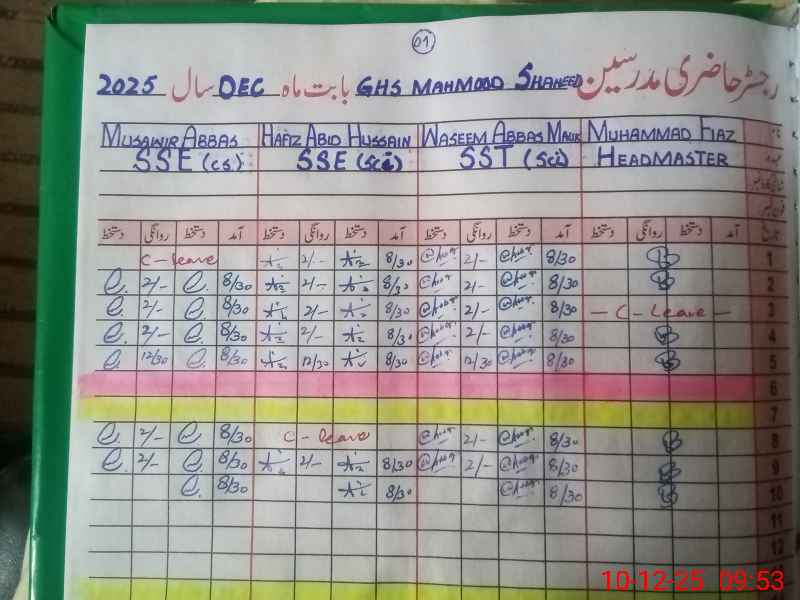 01
رجسٹر حاضری مدرسین GHS MAHMOOD SHAHEED بابت ماہ DEC سال 2025
MUSAWIR ABBAS HAFIZ ABID HUSSAIN WASEEM ABBAS MALIK MUHAMMAD FIAZ نام
SSE (CS) SSE (Sci) SST (Sci) HEADMASTER عہدہ
فون نمبر
دستخط روانگی دستخط آمد دستخط روانگی دستخط آمد دستخط روانگی دستخط آمد دستخط روانگی دستخط آمد تاریخ
C-leave 2/- 8/30 2/- 8/30 1
2/- 8/30 2/- 8/30 2/- 8/30 2
2/- 8/30 2/- 8/30 2/- 8/30 — C - Leave — 3
2/- 8/30 2/- 8/30 2/- 8/30 4
12/30 8/30 12/30 8/30 12/30 8/30 5
6
7
2/- 8/30 C - leave 2/- 8/30 8
2/- 8/30 2/- 8/30 2/- 8/30 9
8/30 8/30 8/30 10
11
12
10-12-25 09:53